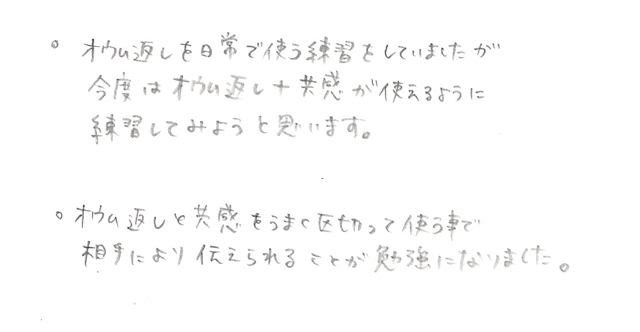 。オウム返しを日常で使う練習をしていましたが
今度はオウム返し+共感が使えるように
練習してみようと思います。
。オウム返しと共感をうまく区切って使う事で
相手により伝えられることが勉強になりました。